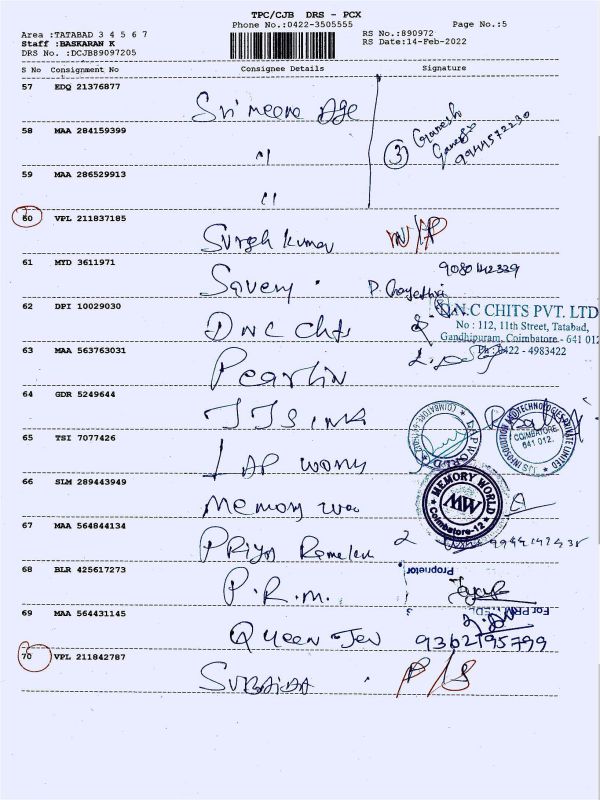 TPC/CJB DRS - PCX
Phone No.:0422-3505555
Page No.:5
Area :TATABAD 3 4 5 6 7
Staff :BASKARAN K
DRS No. :DCJB89097205
RS No.:890972
RS Date:14-Feb-2022
S No Consignment No Consignee Details Signature
57 EDQ 21376877
Sri meena Age
58 MAA 284159399
"
3
Ganesh
Ganesh
9944572230
59 MAA 286529913
"
60 VPL 211837185
Suresh Kumar
61 MYD 3611971
9080142339
62 DPI 10029030
DNC Chits
D.N.C CHITS PVT. LTD
No : 112, 11th Street, Tatabad,
Gandhipuram, Coimbatore - 641 012
Ph : 0422 - 4983422
63 MAA 563763031
Pearlin
64 GDR 5249644
COIMBATORE
LAP WORLD
JJS INFOSOLUTION AND TECHNOLOGIES PRIVATE LIMITED
COIMBATORE
641 012.
65 TSI 7077426
LAP World
66 SLM 289443949
Memory
MEMORY WORLD
MW
Coimbatore-12
67 MAA 564844134
Priya
68 BLR 425617273
P.R.M.
Proprietor
For PRM
69 MAA 564431145
Queen Jew
9362195799
70 VPL 211842787
SUBAIDA
P/S